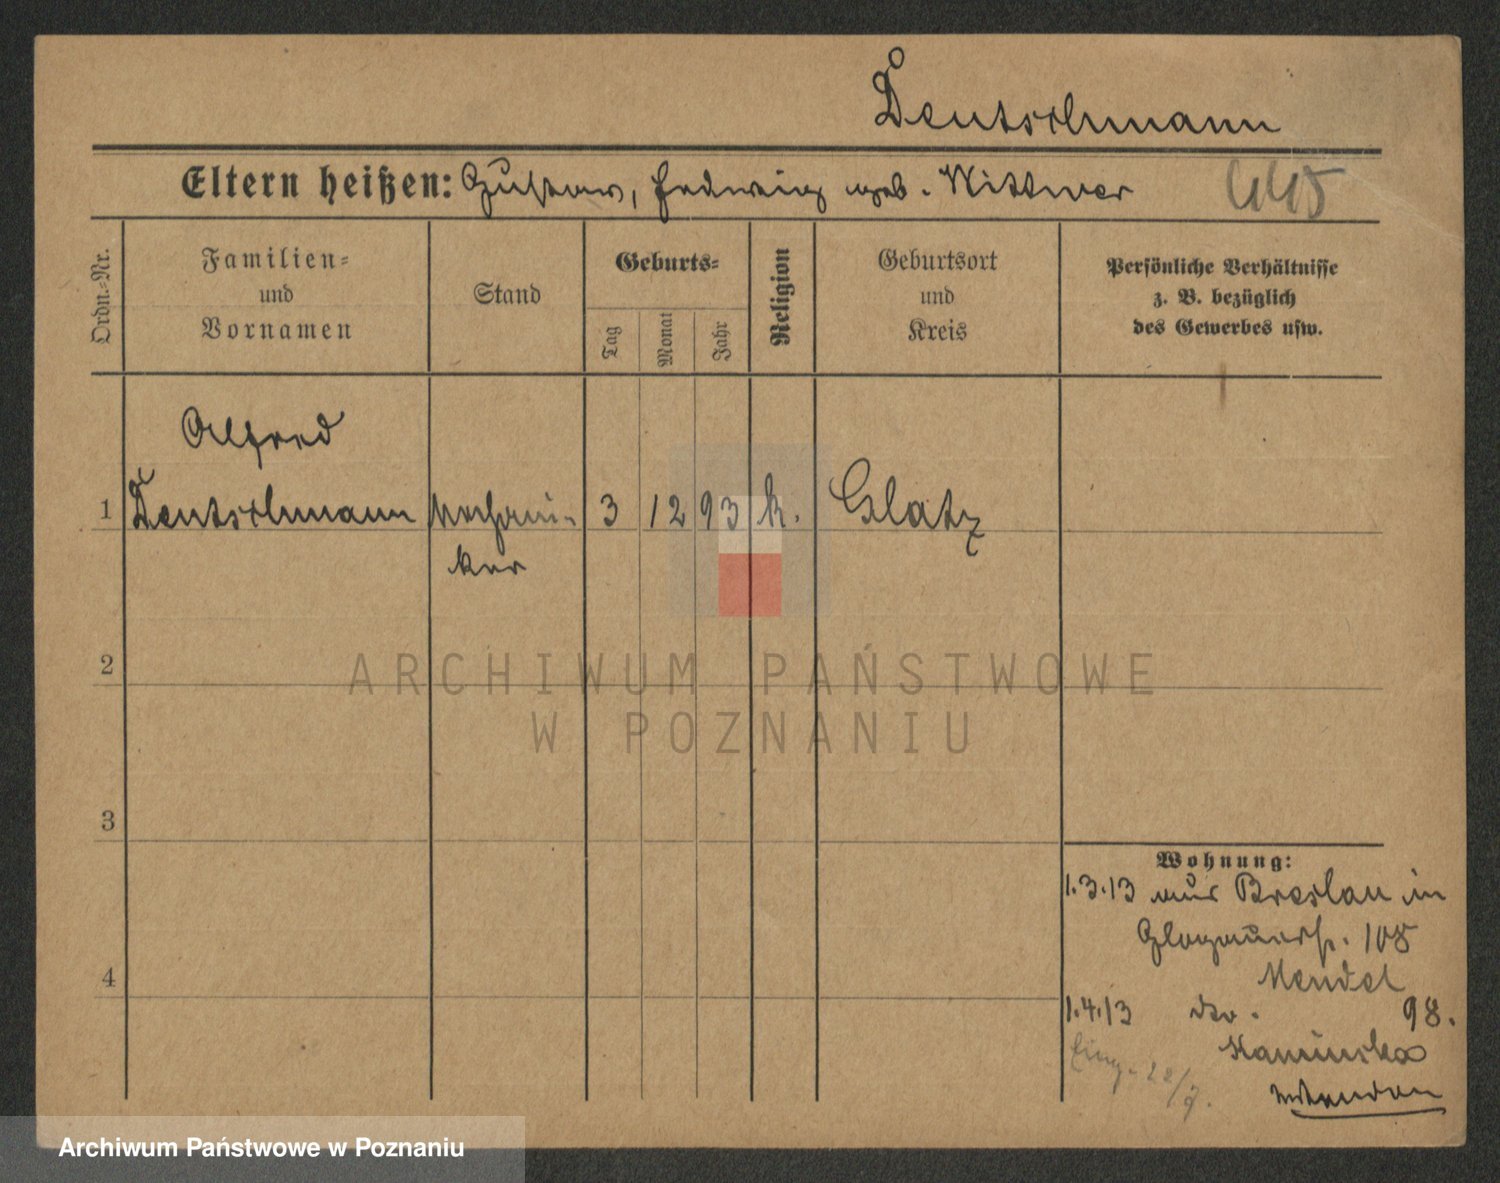 Deutschmann
Eltern heißen: Gustav, Hedwig geb. Wittwer
Ordn.-Nr.
Familien-
und
Vornamen
Stand
Geburts-
Tag
Monat
Jahr
Religion
Geburtsort
und
Kreis
Persönliche Verhältnisse
z. B. bezüglich
des Gewerbes usw.
Alfred
1 Deutschmann Mechani- 3 12 93 k. Glatz
ker
2
ARCHIWUM PAŃSTWOWE
W POZNANIU
3
4
Wohnung:
1.3.13 aus Breslau in
Glogauerstr. 108
Mendel
1.4.13 dto. 98.
Kaminska
Archiwum Państwowe w Poznaniu